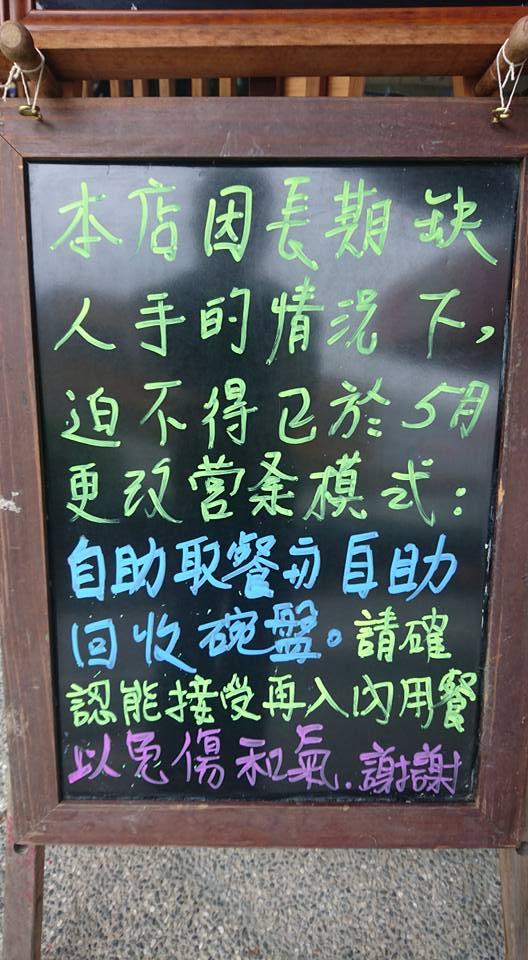 本店因長期缺
人手的情況下，
迫不得已於5月
更改营業模式：
自助取餐与自助
回收碗盤。請確
認能接受再入內用餐
以免傷和氣.謝謝